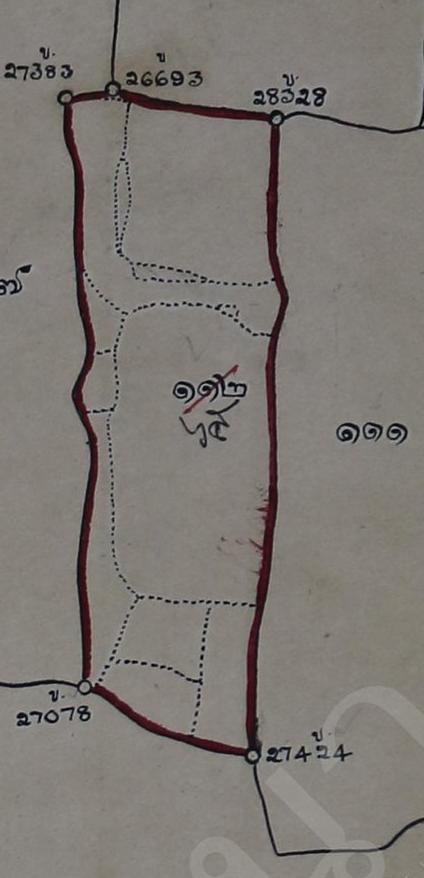 ข.
27383
ข.
26693
ข.
28328
๑๑๒
๖๕
๑๑๑
ข.
27078
ข.
27424